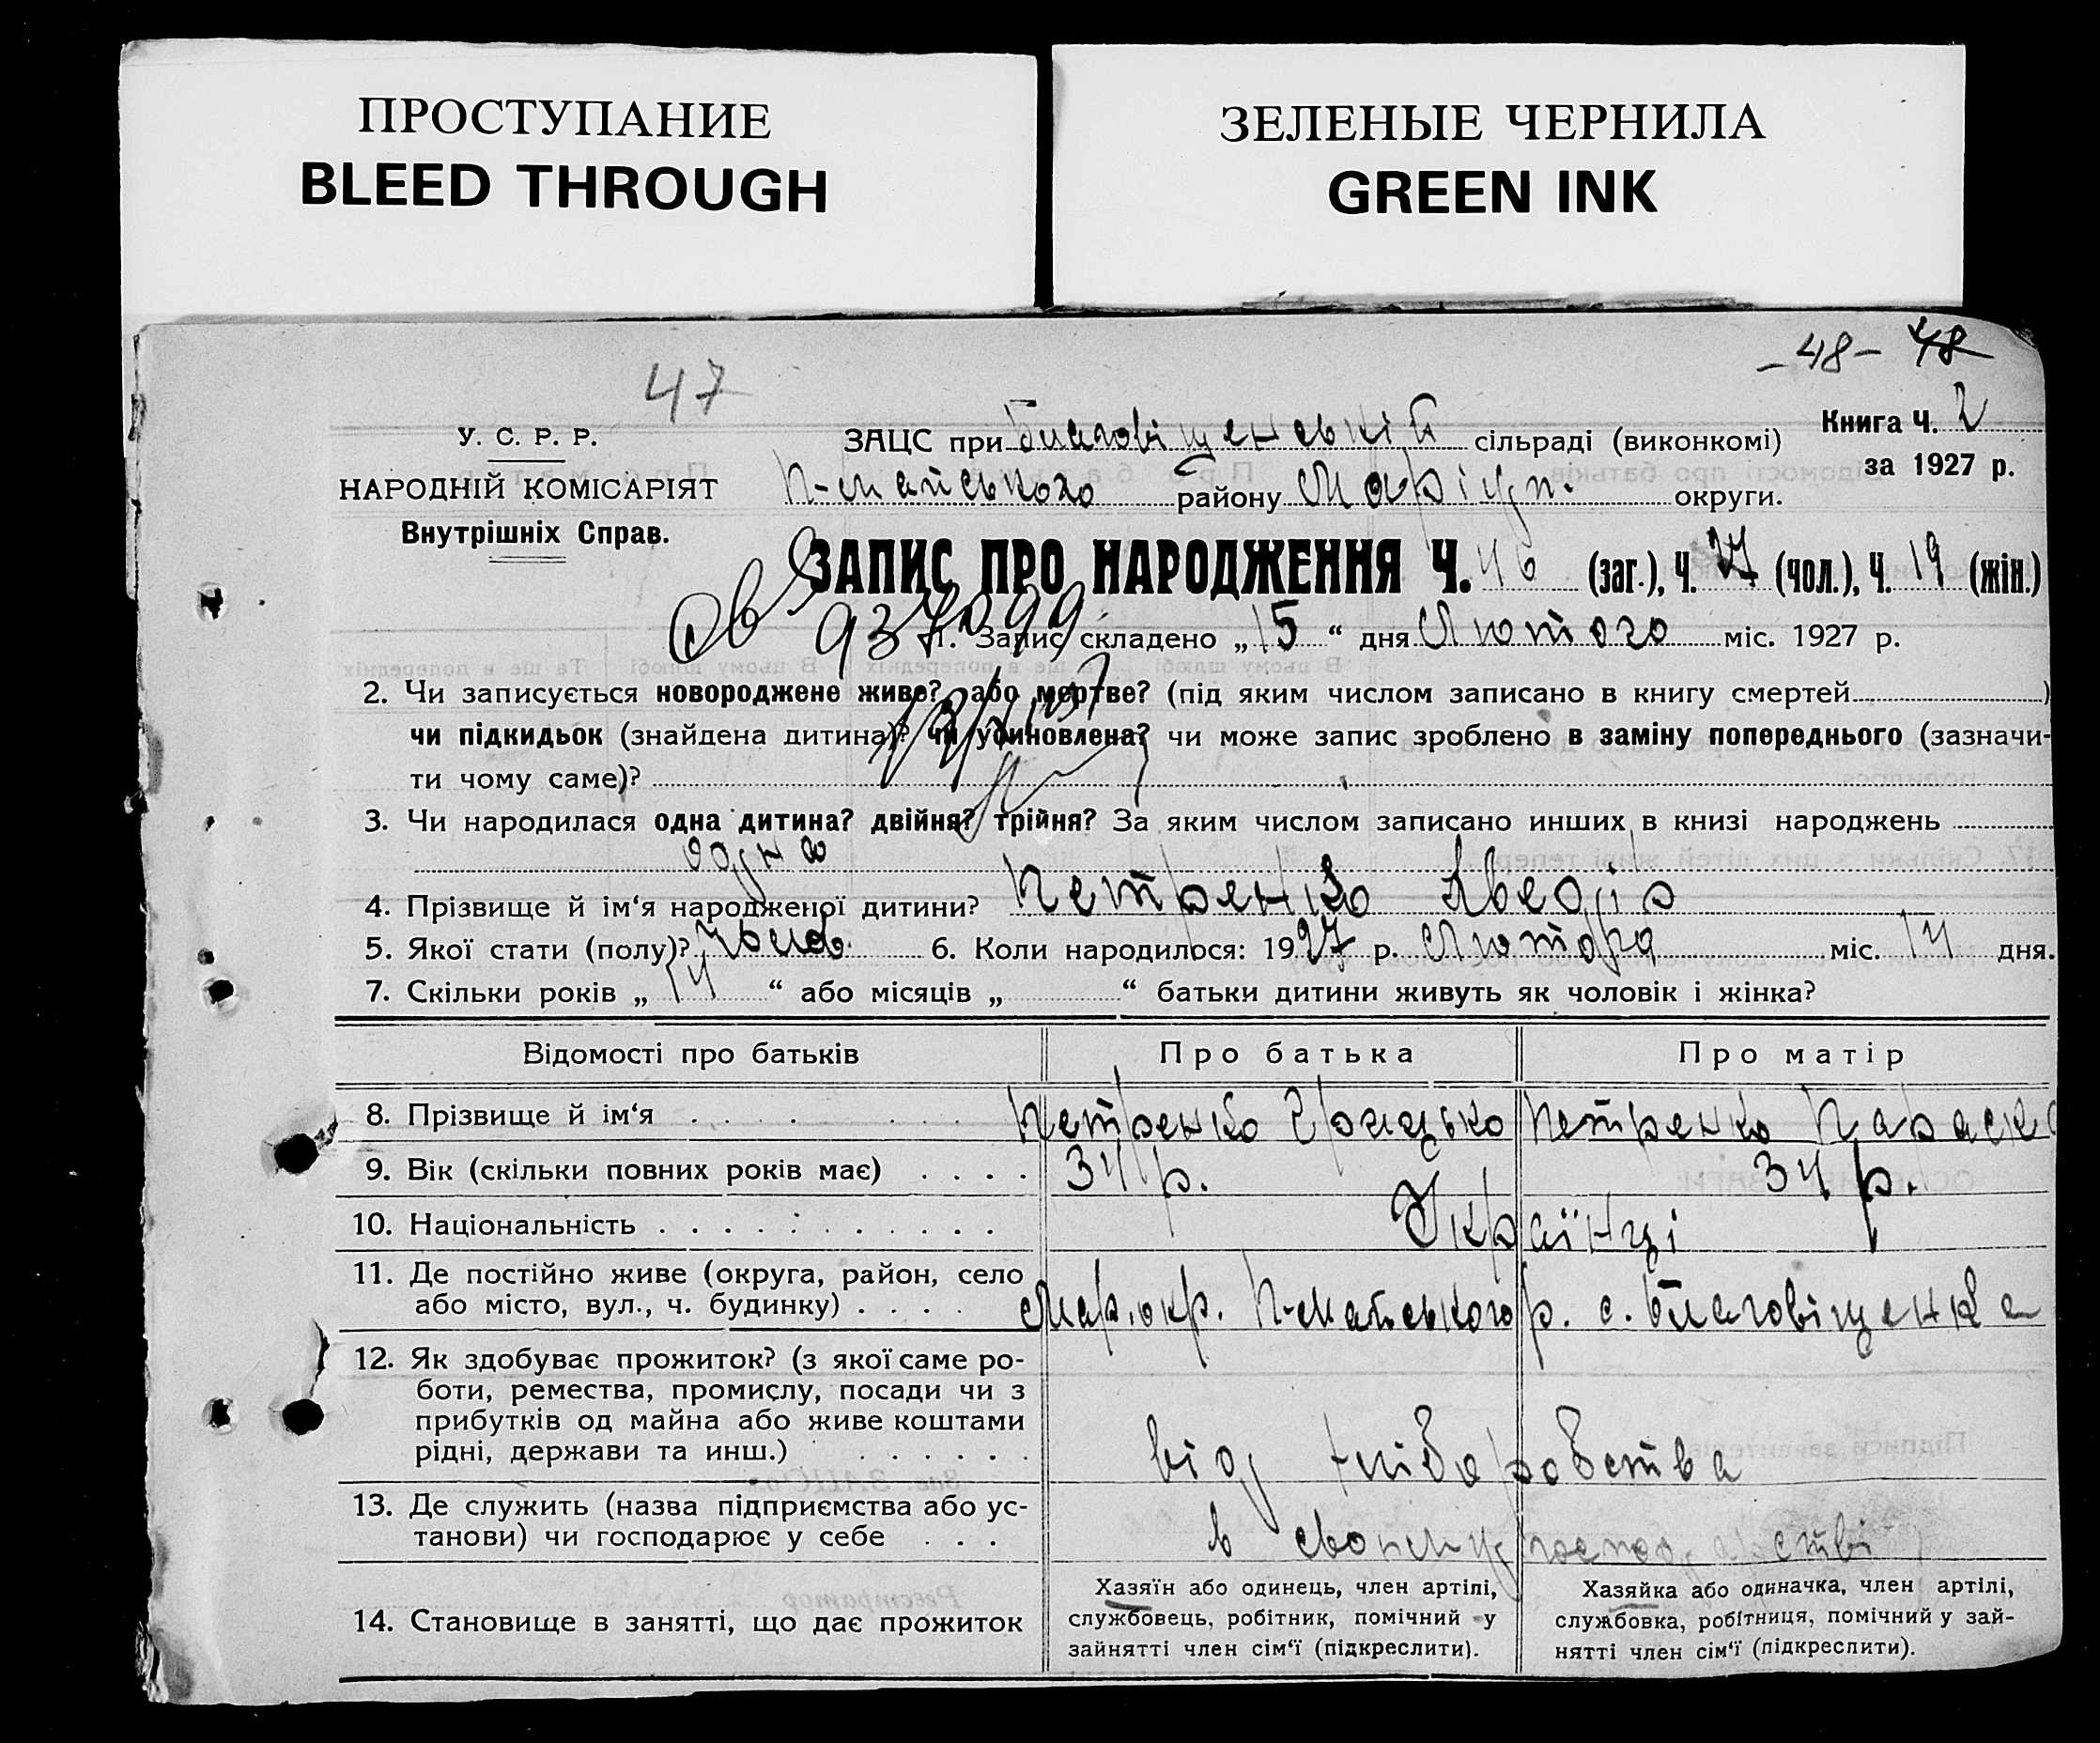 ПРОСТУПАНИЕ
BLEED THROUGH
ЗЕЛЕНЫЕ ЧЕРНИЛА
GREEN INK
-48- 48
47
Книга Ч. 2
за 1927 р.
У. С. Р. Р.
НАРОДНІЙ КОМІСАРІЯТ
Внутрішніх Справ.
ЗАЦС при Благовіщенській сільраді (виконкомі)
П-майського району Маріуп. округи.
ЗАПИС ПРО НАРОДЖЕННЯ Ч. 46 (заг.), Ч. 27 (чол.), Ч. 19 (жін.)
1. Запис складено „15“ дня Лютого міс. 1927 р.
2. Чи записується новороджене живе? або мертве? (під яким числом записано в книгу смертей )
чи підкидьок (знайдена дитина)? чи усиновлена? чи може запис зроблено в заміну попереднього (зазначи-
ти чому саме)?
3. Чи народилася одна дитина? двійня? трійня? За яким числом записано инших в книзі народжень
одна
4. Прізвище й ім‘я народженої дитини? Петренко
5. Якої стати (полу)? 6. Коли народилося: 1927 р. Лютого міс. 14 дня.
7. Скільки років „14“ або місяців „ “ батьки дитини живуть як чоловік і жінка?
Відомості про батьків Про батька Про матір
8. Прізвище й ім‘я Петренко Грицько Петренко Параска
9. Вік (скільки повних років має) 34 р. 34 р.
10. Національність Українці
11. Де постійно живе (округа, район, село
або місто, вул., ч. будинку) Мар. окр. П-майського р. с. Благовіщенка
12. Як здобуває прожиток? (з якої саме ро-
боти, ремества, промислу, посади чи з
прибутків од майна або живе коштами
рідні, держави та инш.) від хліборобства
13. Де служить (назва підприємства або ус-
танови) чи господарює у себе в своєму господарстві
14. Становище в занятті, що дає прожиток
Хазяїн або одинець, член артілі,
службовець, робітник, помічний у
зайнятті член сім‘ї (підкреслити).
Хазяйка або одиначка, член артілі,
службовка, робітниця, помічний у зай-
нятті член сім‘ї (підкреслити).